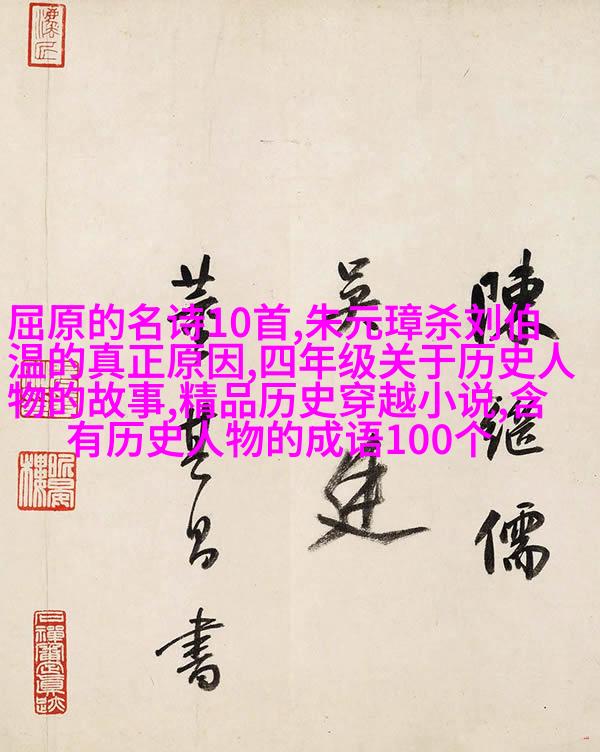 屈原的名诗10首,朱元璋杀刘伯
温的真正原因,四年级关于历史人
物的故事,精品历史穿越小说,含
有历史人物的成语100个
陳繼儒
吳廷
董其昌書